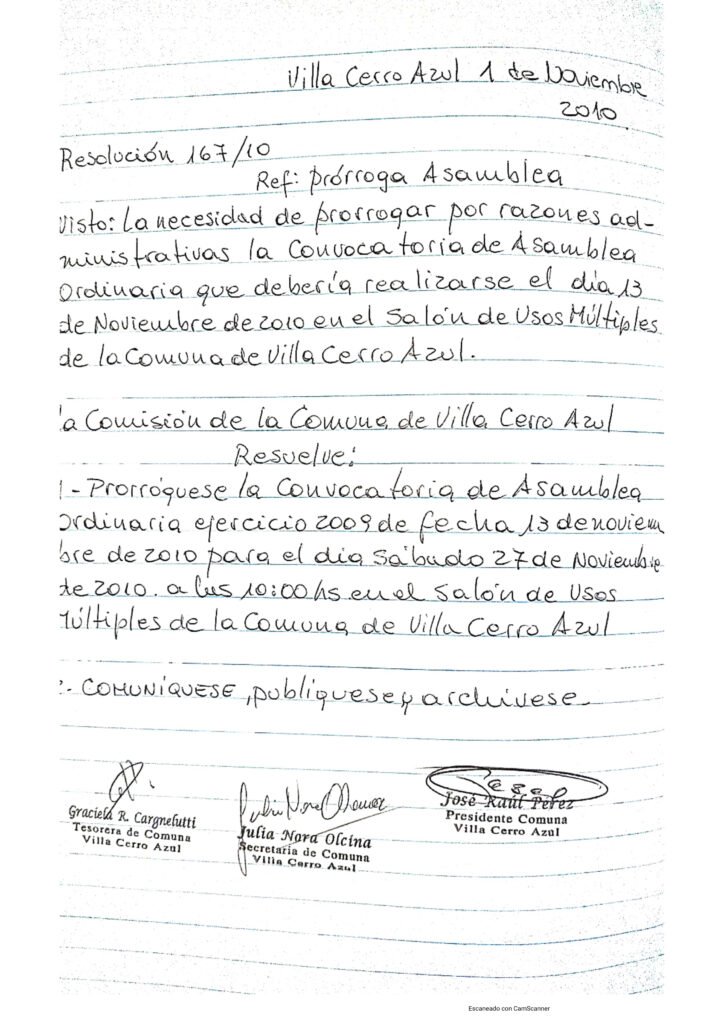 Villa Cerro Azul 1 de Noviembre
2010.
Resolución 167/10
Ref: prórroga Asamblea
Visto: La necesidad de prorrogar por razones ad-
ministrativas la Convocatoria de Asamblea
Ordinaria que debería realizarse el día 13
de Noviembre de 2010 en el Salón de Usos Múltiples
de la Comuna de Villa Cerro Azul.
la Comisión de la Comuna de Villa Cerro Azul
Resuelve:
1- Prorróguese la Convocatoria de Asamblea
Ordinaria ejercicio 2009 de fecha 13 de noviem
bre de 2010 para el día Sábado 27 de Noviembre
de 2010. a las 10:00 hs en el Salón de Usos
Múltiples de la Comuna de Villa Cerro Azul
2.- COMUNÍQUESE, publíquese y archívese.
Graciela R. Cargnelutti
Tesorera de Comuna
Villa Cerro Azul
Julia Nora Olcina
Secretaria de Comuna
Villa Cerro Azul
José Raúl Pérez
Presidente Comuna
Villa Cerro Azul
Escaneado con CamScanner